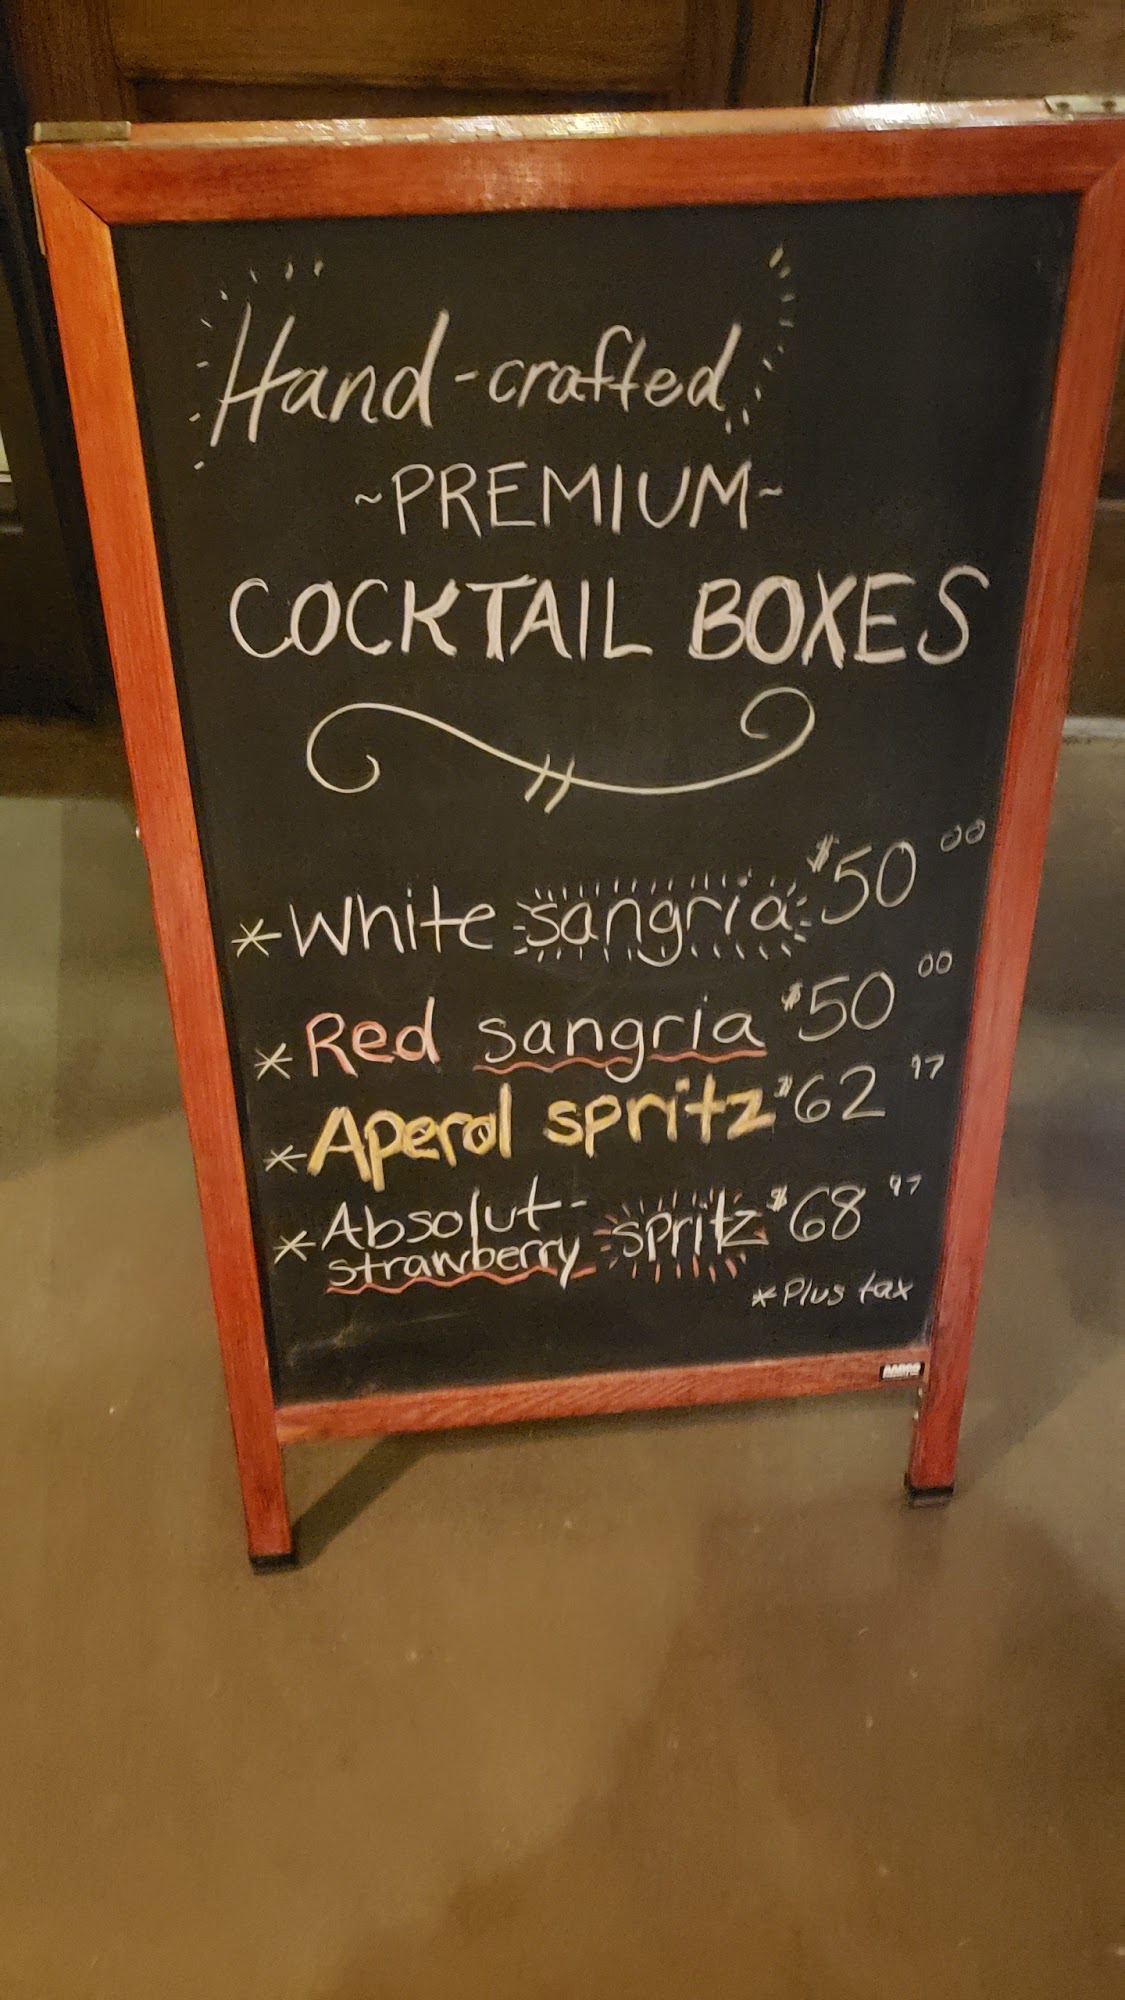 Hand-crafted
~PREMIUM~
COCKTAIL BOXES
* White sangria $50 00
* Red sangria $50 00
* Aperol spritz $62 97
* Absolut-
strawberry spritz $68 97
* Plus tax